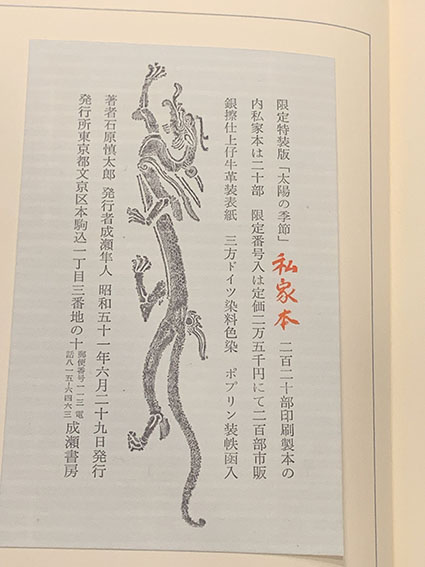 限定特装版「太陽の季節」 私家本 二百二十部印刷製本の
内私家本は二十部 限定番号入は定価二万五千円にて二百部市販
銀擦仕上仔牛革装表紙 三方ドイツ染料色染 ポプリン装帙函入
著者石原慎太郎 発行者成瀬隼人 昭和五十一年六月二十九日発行
発行所東京都文京区本駒込一丁目三番地の十 郵便番号一一三 電話八一五・六四六三 成瀬書房